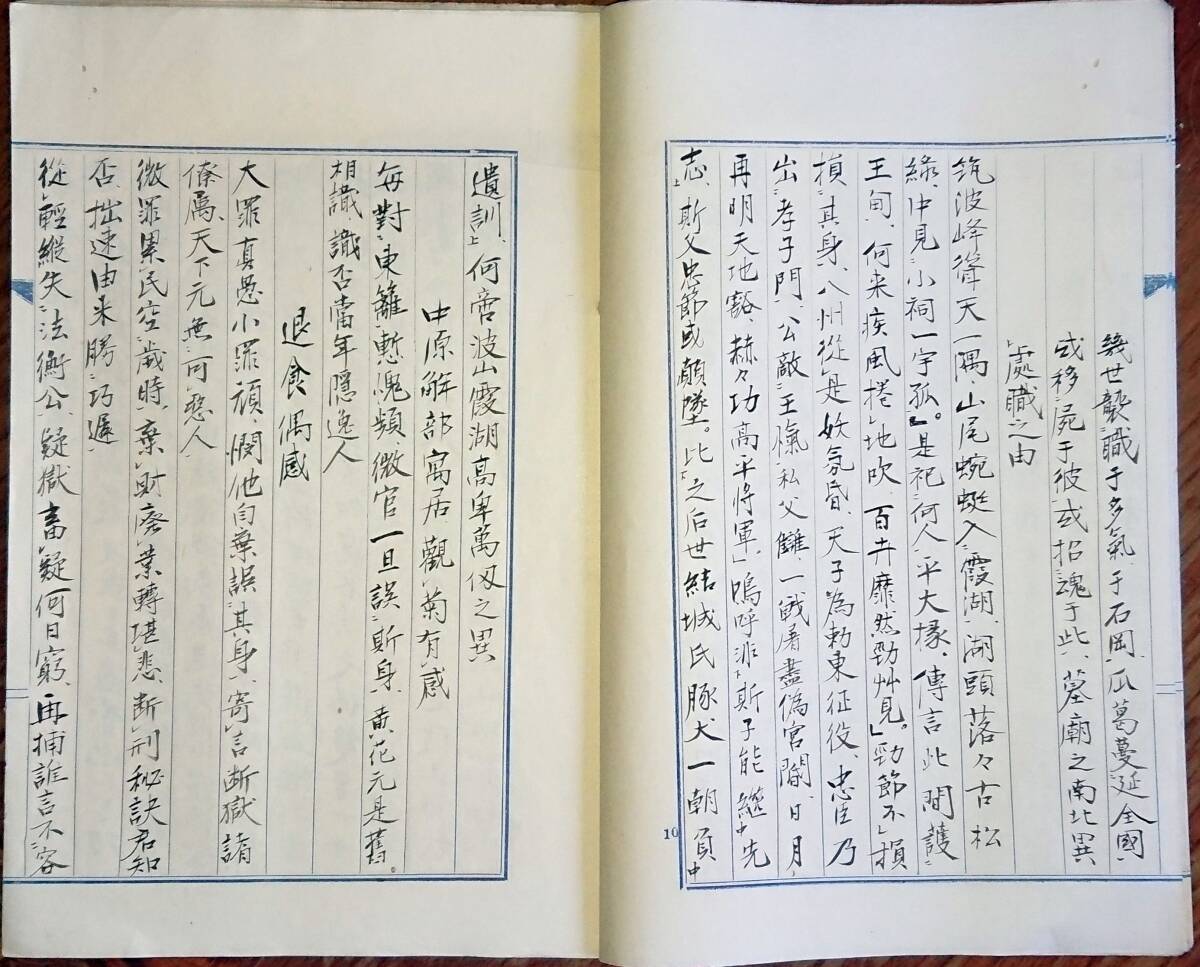 幾世襲職于多氣、于石岡、瓜葛蔓延全國、
或移屍于彼、或招魂于此、墓廟之南北異
處職之由
筑波峰聳天一隅、山尾蜿蜒入霞湖、湖頭落々古松
綠、中見小祠一宇孤。」是祀何人平大掾、傳言此間護
王甸、何来疾風捲地吹、百卉靡然勁艸見。」勁節不損
損其身、八州從是妖氛昏、天子為勅東征役、忠臣乃
出孝子門、公敵王愾私父讎、一戰屠盡偽宮闕、日月
再明天地豁、赫々功高平將軍。」嗚呼非斯子能繼先
志、斯父忠節或顛墜。比之后世結城氏豚犬一朝負
10
遺訓、何啻波山霞湖高卑萬仭之異
中原解部寓居、觀菊有感
每對東籬慙愧頻、微官一旦誤斯身、黄花元是舊
相識、識否當年隱逸人
退食偶感
大罪真愚小罪頑、憫他自棄誤其身、寄言断獄諸
僚属、天下元無可怒人
微罪累民空歲時、棄財廃業轉堪悲、断刑秘訣君知
否、拙速由来勝巧遲
從輕縦失法衡公、疑獄畜疑何日窮、再捕誰言不容